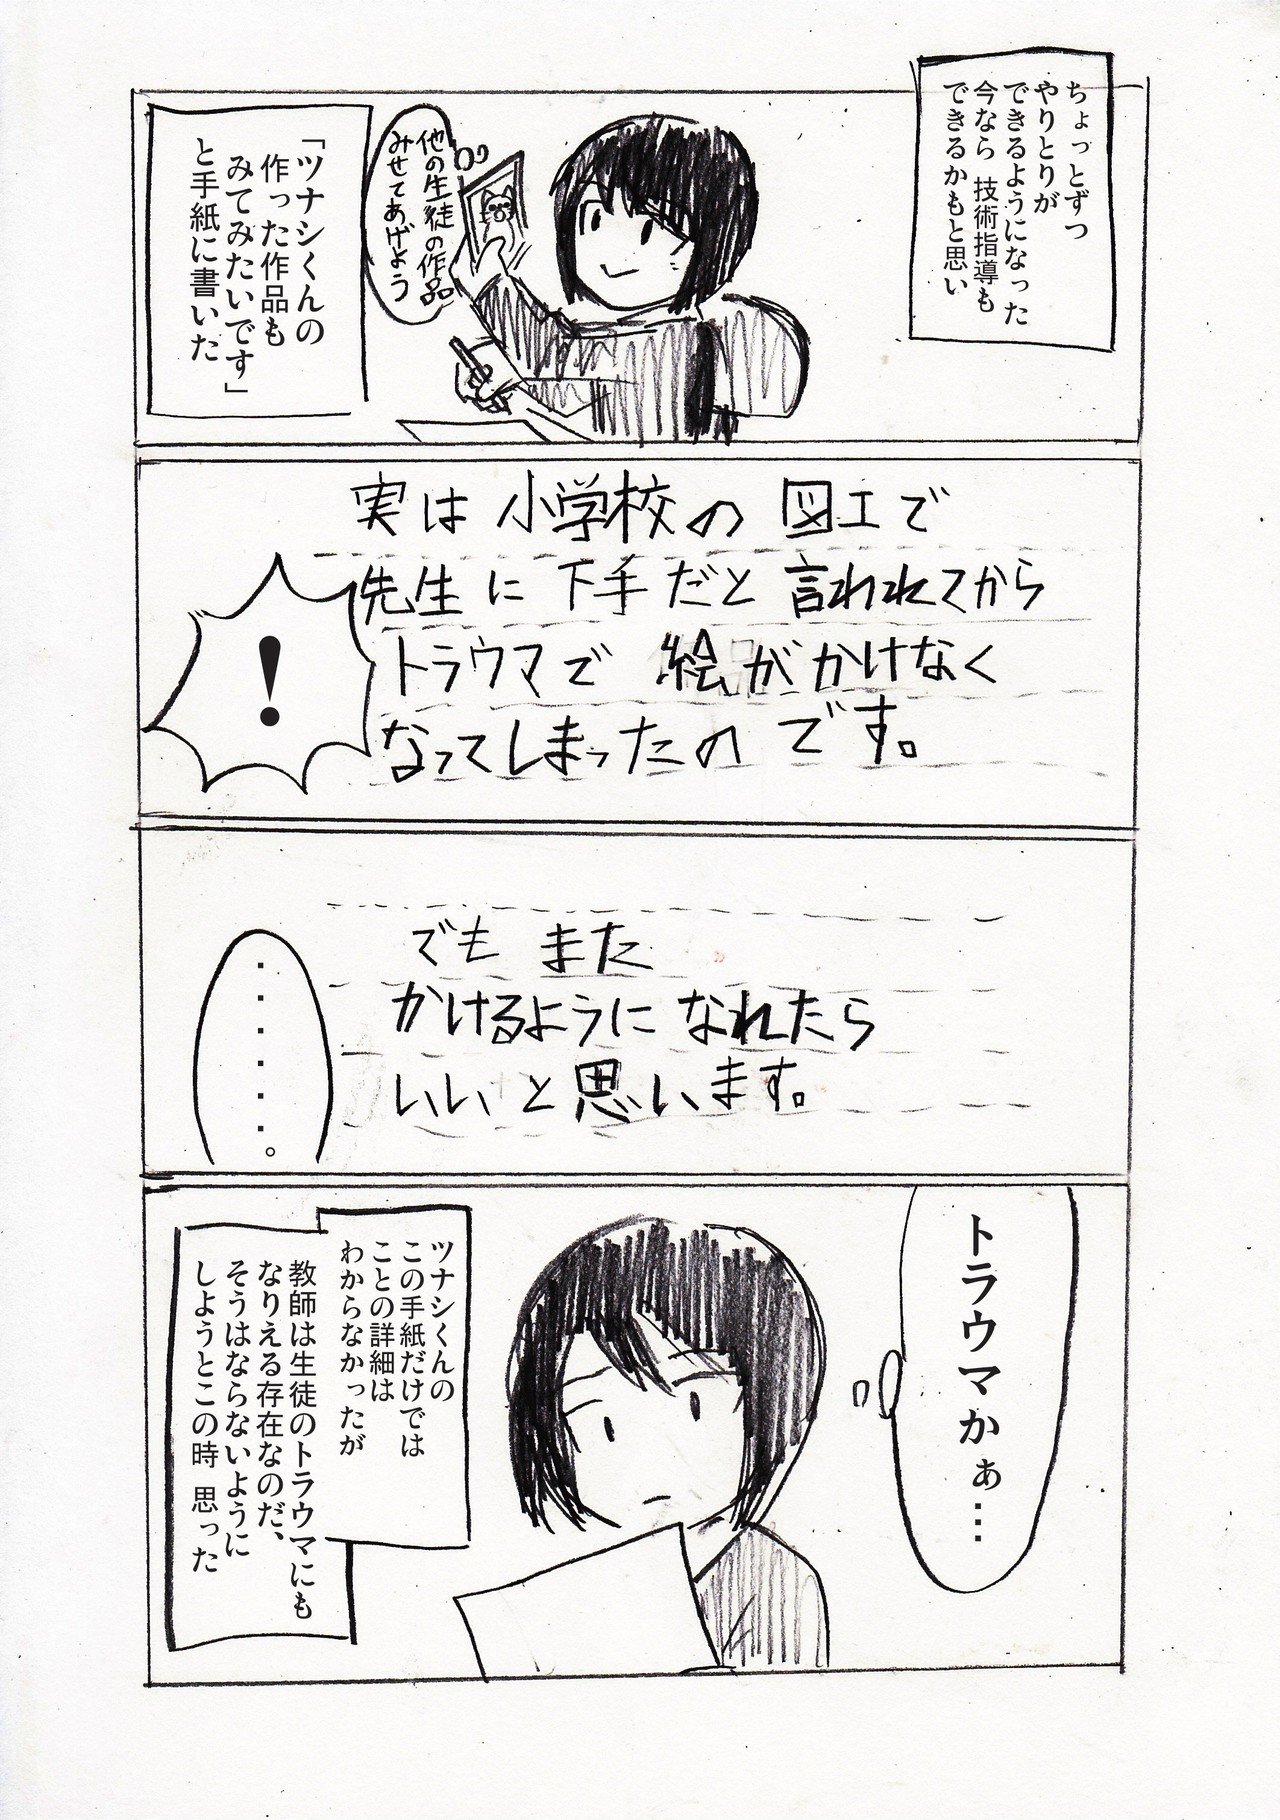 ちょっとずつ
やりとりが
できるようになった
今なら 技術指導も
できるかもと思い
他の生徒の作品
みせてあげよう
「ツナシくんの
作った作品も
みてみたいです」
と手紙に書いた
実は小学校の図工で
先生に下手だと言われてから
トラウマで 絵がかけなく
なってしまったのです。
！
でも また
かけるように なれたら
いいと思います。
・・・・・・。
トラウマかぁ・・・
ツナシくんの
この手紙だけでは
ことの詳細は
わからなかったが
教師は生徒のトラウマにも
なりえる存在なのだ、
そうはならないように
しようとこの時 思った